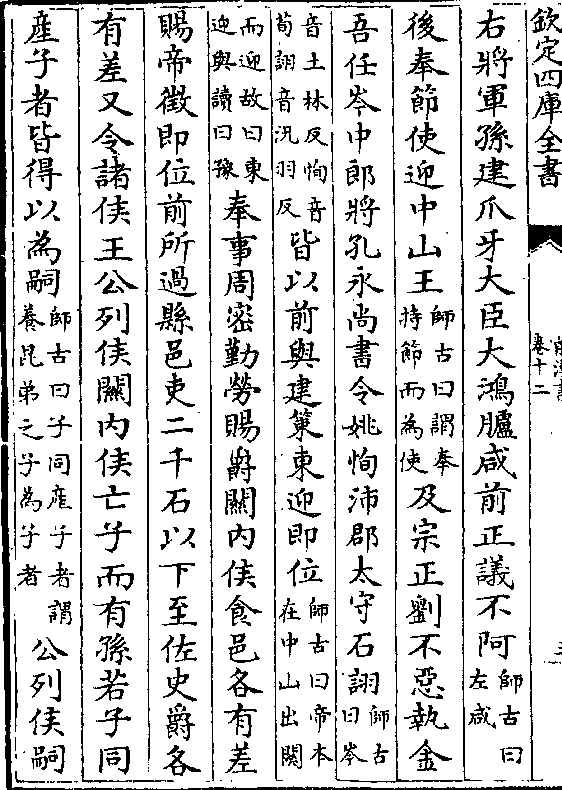 欽定四庫全書
卷十二
右將軍孫建爪牙大臣大鴻臚咸前正議不阿師古曰左咸
後奉節使迎中山王師古曰謂奉持節而為使及宗正劉不惡執金
吾任岑中郎將孔永尚書令姚恂沛郡太守石詡師古曰岑
音士林反恂音荀詡音況羽反皆以前與建策東迎即位師古曰帝本在中山出關
而迎故曰東迎與讀曰豫奉事周密勤勞賜爵關內侯食邑各有差
賜帝徵即位前所過縣邑吏二千石以下至佐史爵各
有差又令諸侯王公列侯關內侯亡子而有孫若子同
產子者皆得以為嗣師古曰子同產子者謂養昆弟之子為子者公列侯嗣